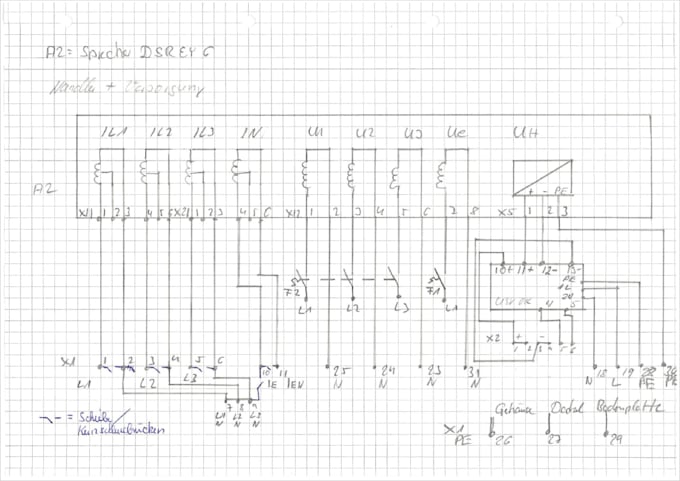 A2 = Sprecher DSREY 6
Wandler + Versorgung
IL1 IL2 IL3 IN U1 U2 U3 Ue UH
A2
+ - PE
X11 1 2 3 4 5 6 X21 1 2 3 4 5 6 X12 1 2 3 4 5 6 7 8 X5 1 2 3
10+ 11+ 12- 13-
PE
1L
2N
4 5
F2 F1
L1 L2 L3 L1
X2 + -
1 2 3 4 5 6
X1 1 2 3 4 5 6 10 11 25 24 23 31 18 19 28 26
L1 L2 L3 IE IEN N N N N N L PE PE
7 8 9
L1 L2 L3
N N N
= Schiebe/
Kurzschlussbrücken
Gehäuse Deckel Bodenplatte
X1
PE 26 27 29